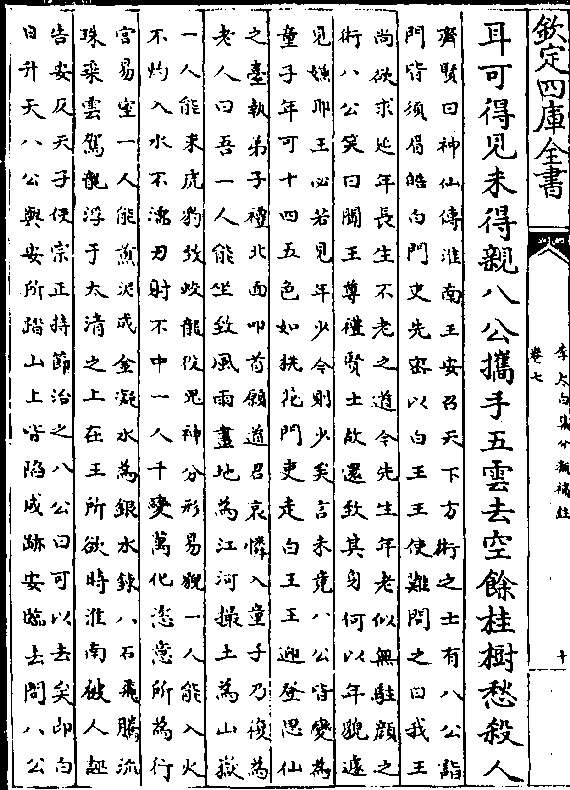 欽定四庫全書
李太白集分類補註
卷七
十
耳可得見未得親八公攜手五雲去空餘桂樹愁殺人
齊賢曰神仙傳淮南王安召天下方術之士有八公詣
門皆須眉皓白門吏先密以白王王使難問之曰我王
尚欲求延年長生不老之道今先生年老似無駐顔之
術八公笑曰聞王尊禮賢士故遠致其身何以年貌遽
見嫌耶王必若見年少今則少矣言未竟八公皆變為
童子年可十四五色如桃花門吏走白王王迎登思仙
之臺執弟子禮北面叩首願道君哀憐八童子乃復為
老人曰吾一人能坐致風雨畫地為江河撮土為山嶽
一人能束虎豹致蛟龍役鬼神分形易貌一人能入火
不灼入水不濡刃射不中一人千變萬化恣意所為行
宮易室一人能煎泥成金凝水為銀水鍊八石飛騰流
珠乗雲駕龍浮于太清之上在王所欲時淮南被人誣
告安反天子使宗正持節治之八公曰可以去矣即白
日升天八公與安所踏山上皆陷成跡安臨去問八公